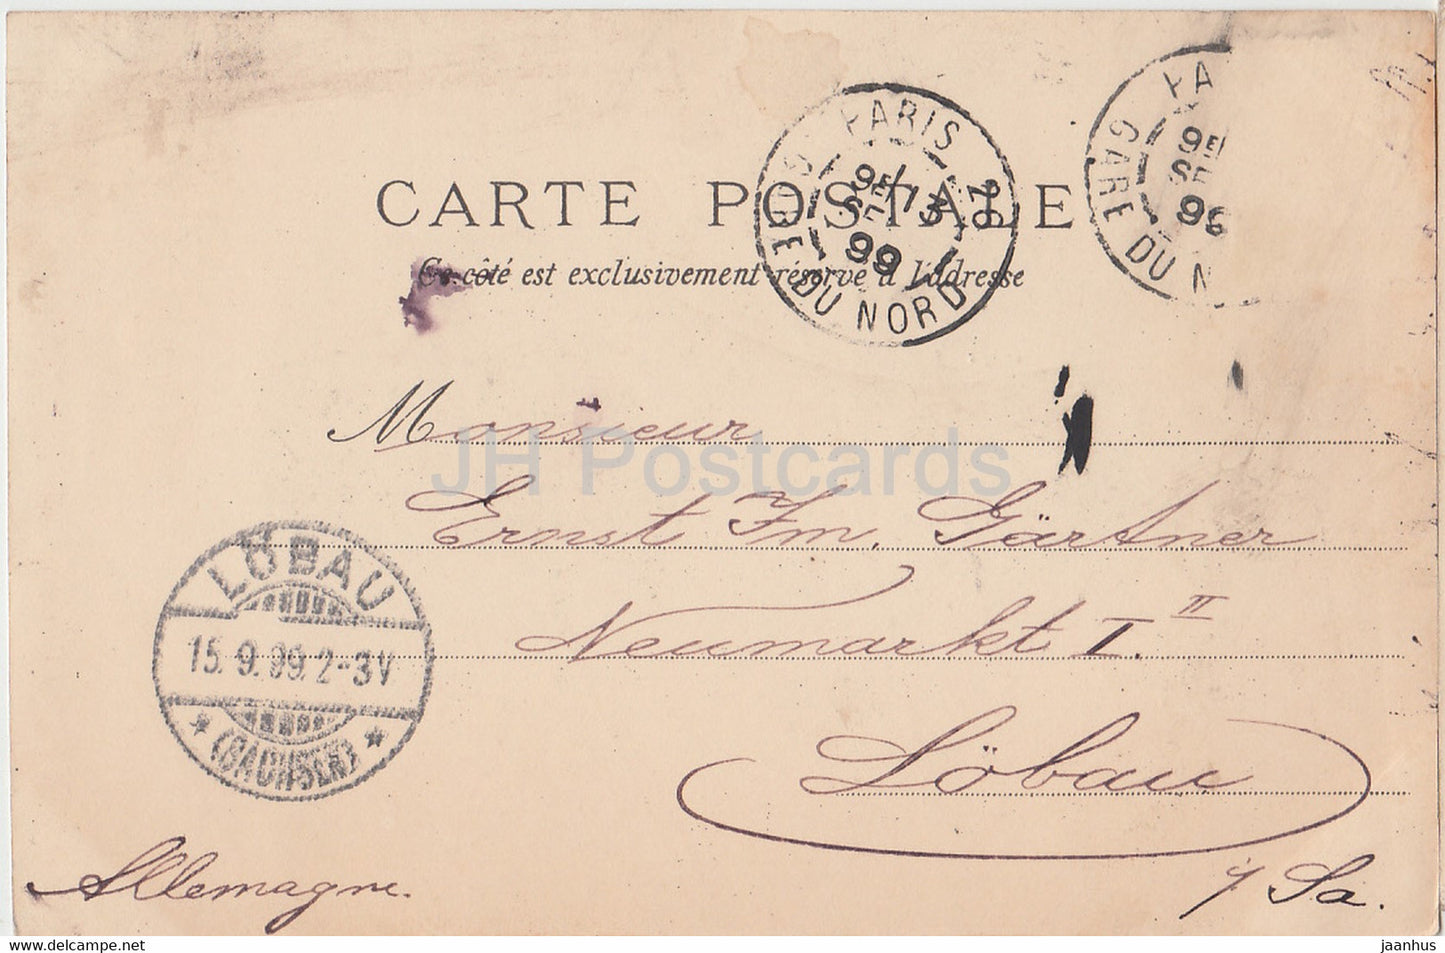 CARTE POSTALE
Ce côté est exclusivement réservé à l'adresse
PARIS 26
9E 13
SE
99
GARE DU NORD
PA
9E
SE
99
GARE DU N
Monsieur
JH Postcards
Ernst Fm. Gärtner
Neumarkt I. II
Löbau
i/ Sa.
Allemagne.
LÖBAU
15.9.99.2-3V
* (SACHSEN) *
www.delcampe.net
jaanhus